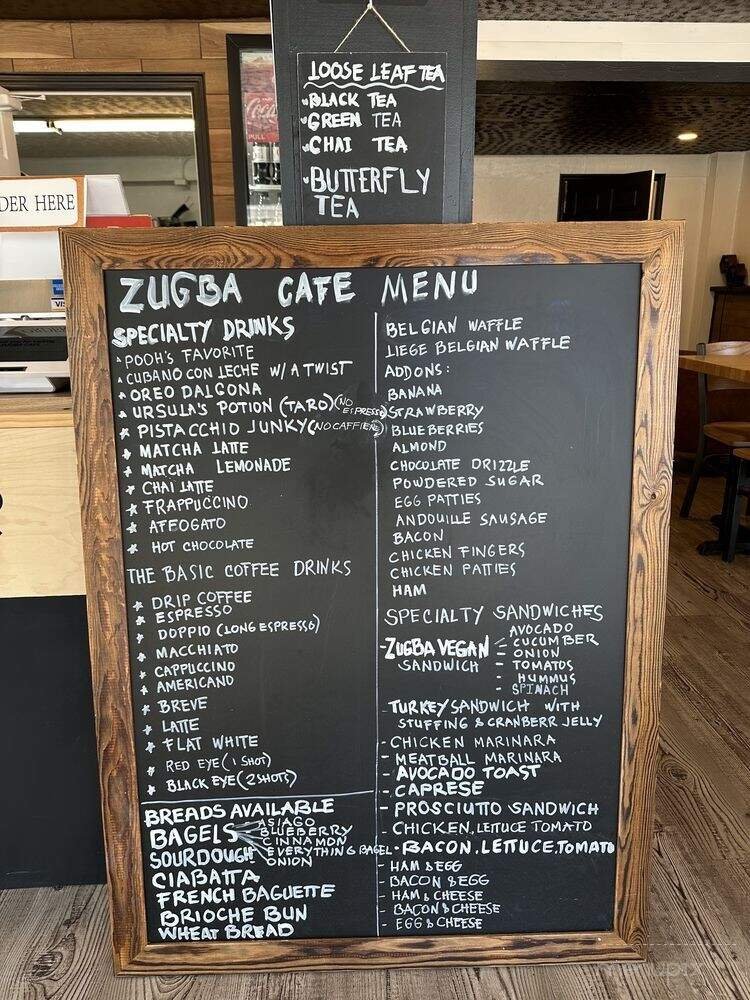 LOOSE LEAF TEA
BLACK TEA
GREEN TEA
CHAI TEA
BUTTERFLY
TEA
Coca-Cola
PULL
DER HERE
ZUGBA CAFE MENU
SPECIALTY DRINKS
POOH'S FAVORITE
CUBANO CON LECHE W/ A TWIST
OREO DALGONA
URSULA'S POTION (TARO) (NO ESPRESSO)
PISTACCHIO JUNKY (NO CAFFIENE)
MATCHA LATTE
MATCHA LEMONADE
CHAI LATTE
FRAPPUCCINO
AFFOGATO
HOT CHOCOLATE
THE BASIC COFFEE DRINKS
DRIP COFFEE
ESPRESSO
DOPPIO (LONG ESPRESSO)
MACCHIATO
CAPPUCCINO
AMERICANO
BREVE
LATTE
FLAT WHITE
RED EYE (1 SHOT)
BLACK EYE (2 SHOTS)
BREADS AVAILABLE
BAGELS
ASIAGO
BLUEBERRY
CINNAMON
EVERYTHING BAGEL
ONION
SOURDOUGH
CIABATTA
FRENCH BAGUETTE
BRIOCHE BUN
WHEAT BREAD
BELGIAN WAFFLE
LIEGE BELGIAN WAFFLE
ADD ONS:
BANANA
STRAWBERRY
BLUEBERRIES
ALMOND
CHOCOLATE DRIZZLE
POWDERED SUGAR
EGG PATTIES
ANDOUILLE SAUSAGE
BACON
CHICKEN FINGERS
CHICKEN PATTIES
HAM
SPECIALTY SANDWICHES
- ZUGBA VEGAN
SANDWICH
- AVOCADO
- CUCUMBER
- ONION
- TOMATOS
- HUMMUS
- SPINACH
- TURKEY SANDWICH WITH
STUFFING & CRANBERR JELLY
- CHICKEN MARINARA
- MEATBALL MARINARA
- AVOCADO TOAST
- CAPRESE
- PROSCIUTTO SANDWICH
- CHICKEN, LETTUCE TOMATO
- BACON, LETTUCE, TOMATO
- HAM & EGG
- BACON & EGG
- HAM & CHEESE
- BACON & CHEESE
- EGG & CHEESE